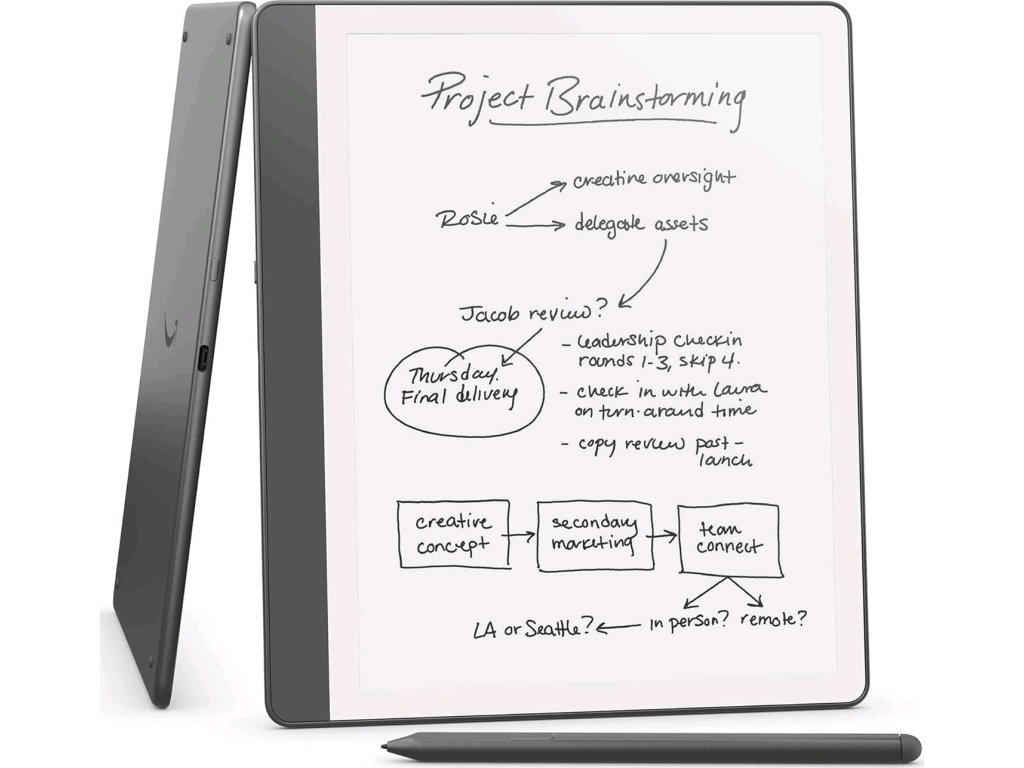 Project Brainstorming
creative oversight
Rosie
delegate assets
Jacob review?
- leadership checkin
rounds 1-3, skip 4.
Thursday.
Final delivery
- check in with Laura
on turn-around time
- copy review post-
launch
creative
concept
secondary
marketing
team
connect
in person? remote?
LA or Seattle?